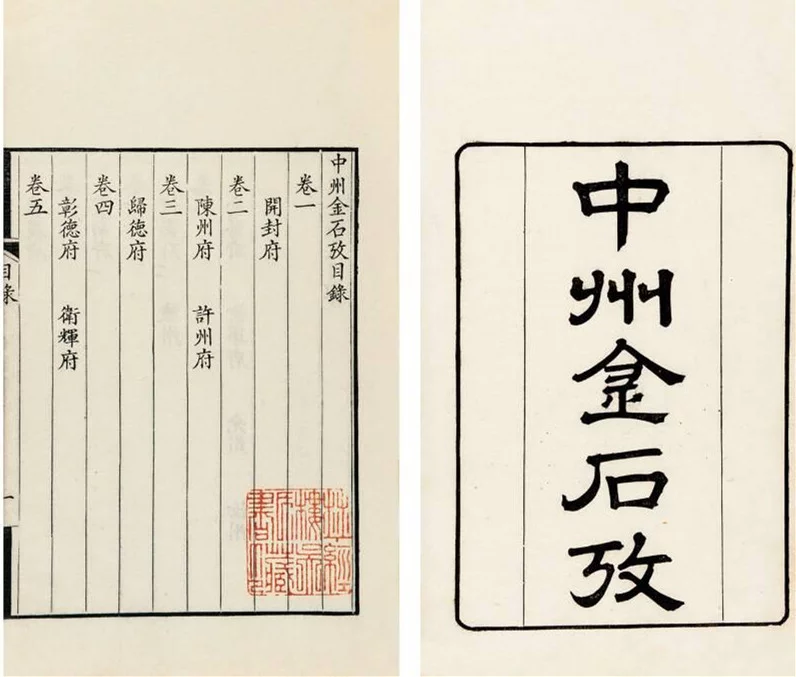 中州金石攷
中州金石攷目錄
卷一
開封府
卷二
陳州府 許州府
卷三
歸德府
卷四
彰德府 衛輝府
卷五
目錄
一